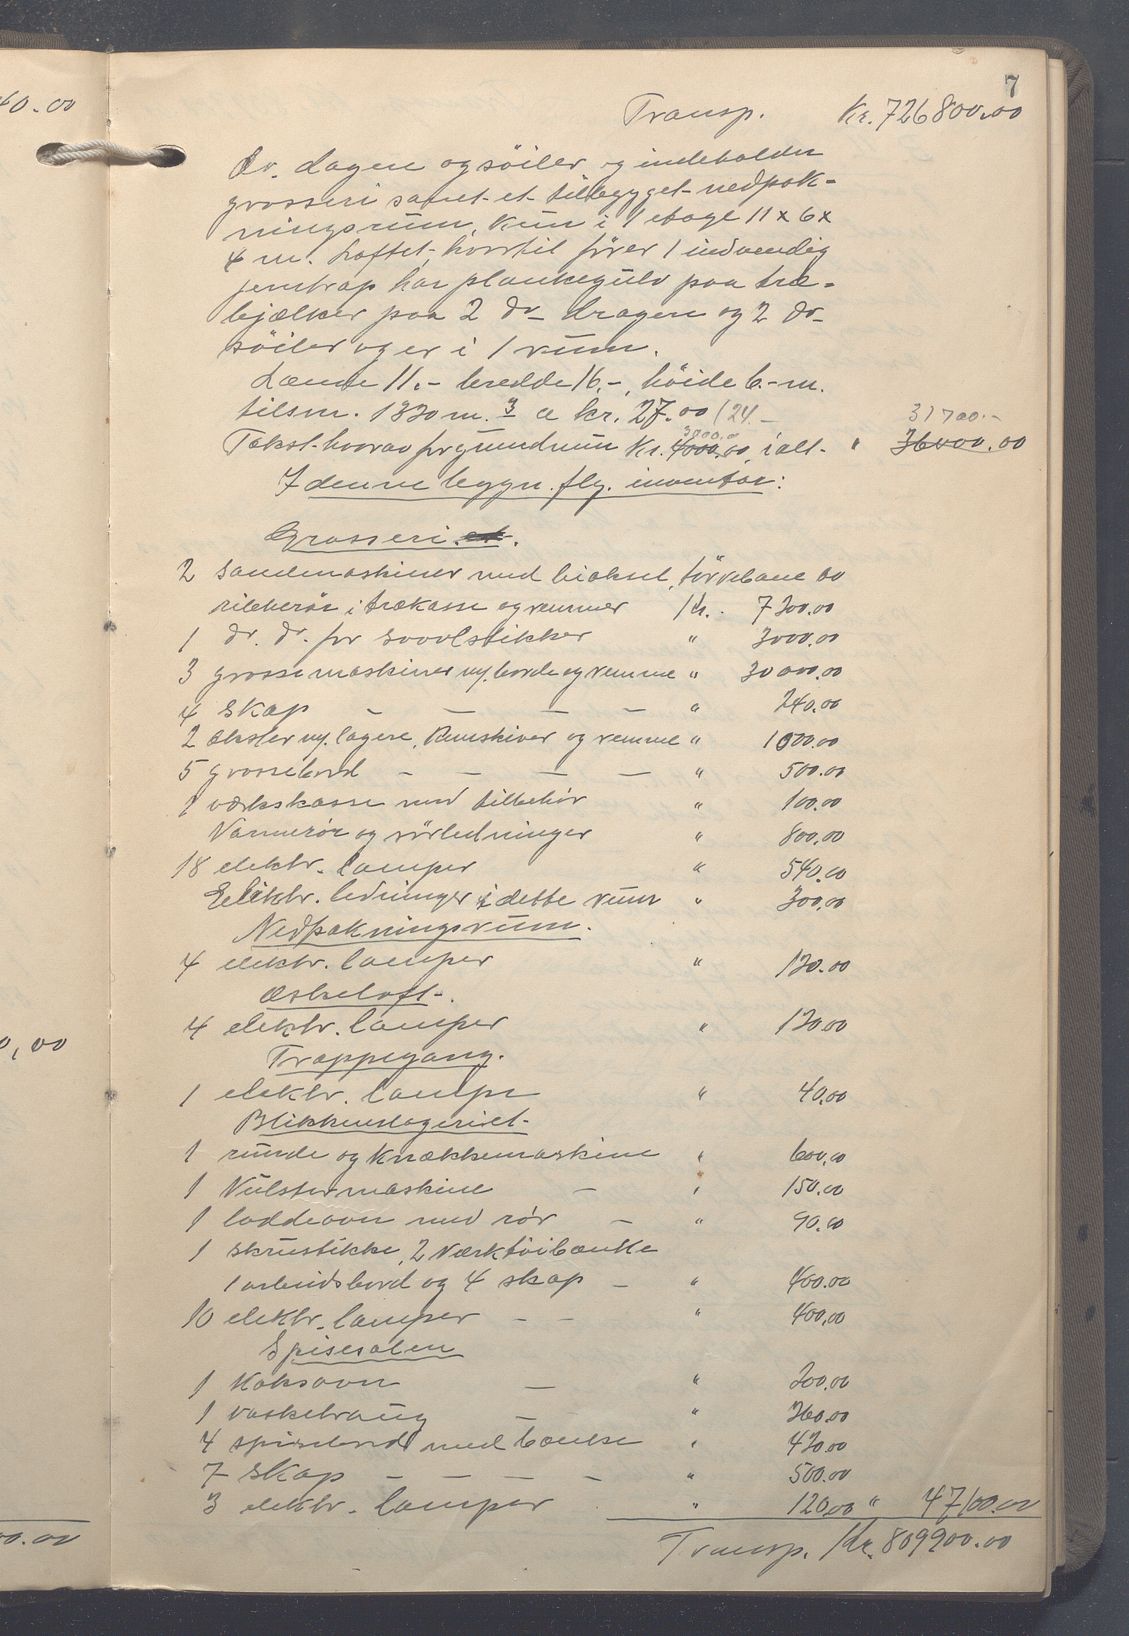 40.00
7
Transp. Kr. 726800.00
Do. dragere og söiler og indeholder
grosseri samt et tilbygget nedpak-
ningsrum, kun i 1 etage 11 x 6 x
4 m. Loftet, hvortil förer 1 indvendig
jerntrap har plankegulv paa træ-
bjælker paa 2 do- dragere og 2 do-
söiler og er i 1 rum.
Længde 11.- bredde 16.-, höide 6.- m.
tilsm. 1320 m. 3 a kr. 27.00 / 24.-
31700.-
3000.00
Takst hvorav for grundmur Kr. 4000.00, ialt - " 36000.00
I denne bygn. flg. inventar:
Grosseri et.
2 sandmaskiner med biaksel, törrebane av
ribberör i trækasse og remmer Kr. 7200.00
1 do. do. for svovlstikker " 3000.00
3 grossemaskiner m/. borde og remme " 30000.00
4 skap - - - - " 240.00
2 aksler m/. lagere, Remskiver og remme " 1000.00
5 grossebord - - - - " 500.00
1 værkskasse med tilbehör " 100.00
Varmerör og rörledninger " 800.00
18 elektr. lamper " 540.00
Elektr. ledninger i dette rum " 300.00
Nedpakningsrum.
4 elektr. lamper " 120.00
Æskeloft-.
4 elektr. lamper " 120.00
Trappegang.
1 elektr. lampe " 40.00
Blikkenslageriet-
1 runde og knækkemaskine " 600.00
1 Vulstermaskine - " 150.00
1 loddeovn med rör - " 90.00
1 skrustikke, 2 Værktöibænke
1 arbeidsbord og 4 skap - " 400.00
10 elektr. lamper - - " 400.00
Spisesalen
1 Koksovn - " 200.00
1 vasketraug - " 360.00
4 spisebord med bænke " 420.00
7 skap - - - - " 500.00
3 elektr. lamper " 120.00 " 47100.00
Transp. Kr. 809900.00
0,00
00.00